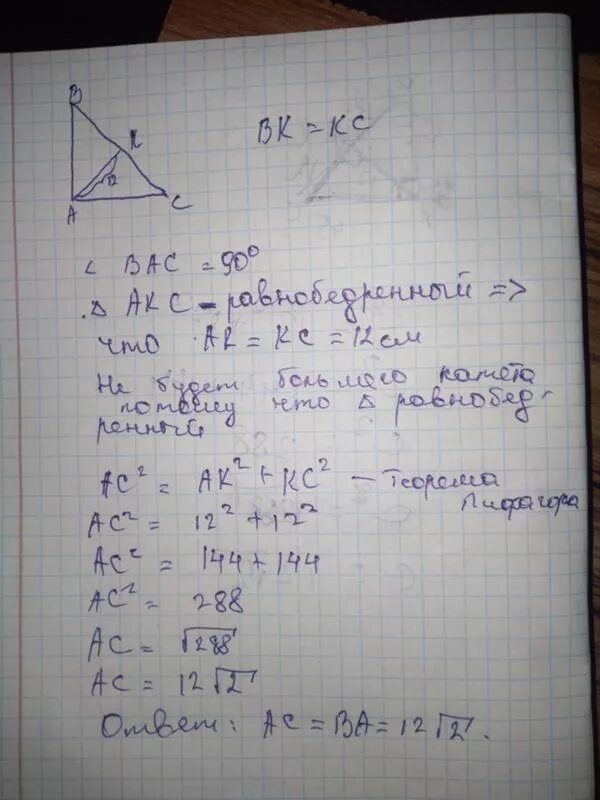 B
K
12
A
C
BK = KC
< BAC = 90°
∆ AKC - равнобедренный =>
что AK = KC = 12 см
Не будет большого катета
потому что ∆ равнобед-
ренный
AC² = AK² + KC² - Теорема
Пифагора
AC² = 12² + 12²
AC² = 144 + 144
AC² = 288
AC = √288
AC = 12√2
Ответ: AC = BA = 12√2.